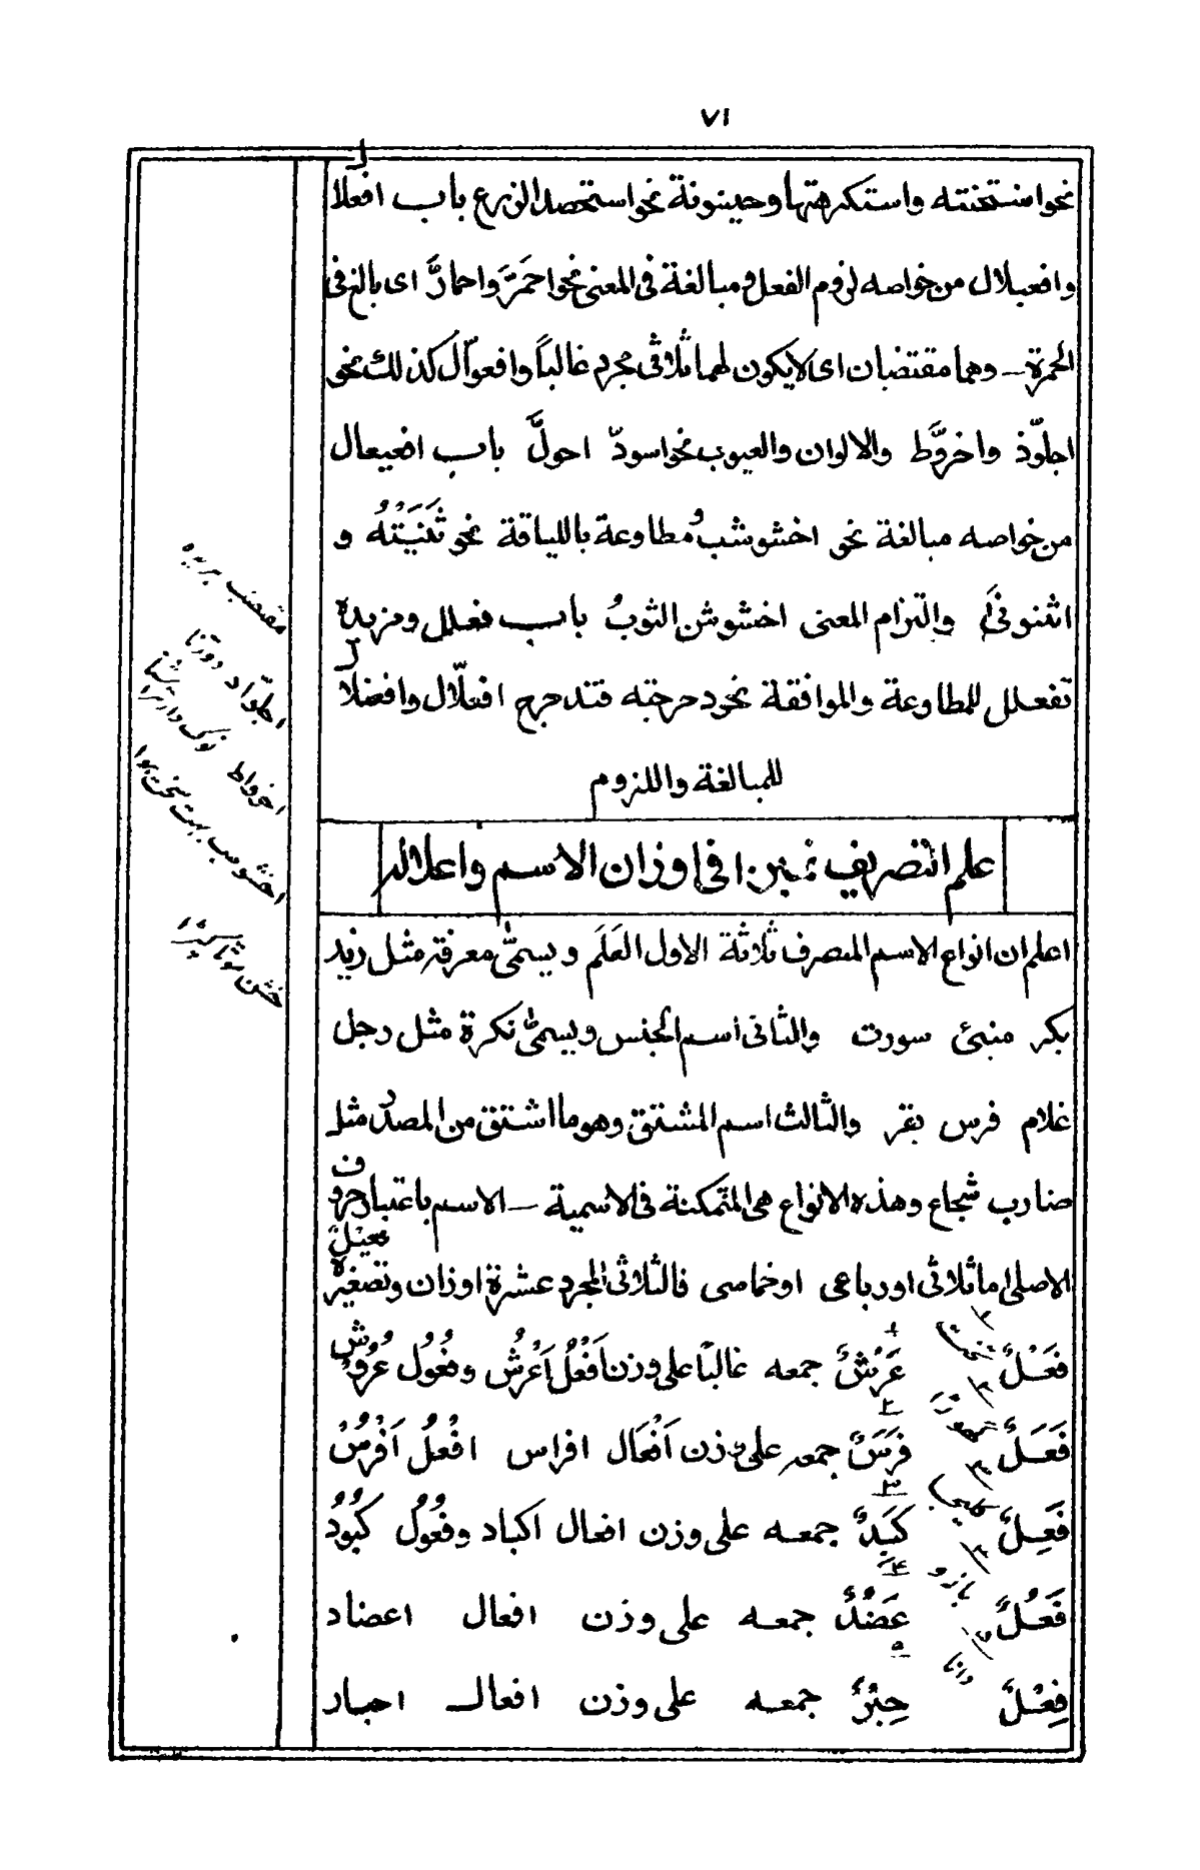 ٧١
نحو استخنته واستكرهتها وحينونة نحو استحصد الزرع باب افعلال
وافعيلال من خواصه لزوم الفعل ومبالغة فى المعنى نحو احمَرَّ واحمارَّ اى بالغ فى
الحمرة ــ وهما مقتضبان اى لا يكون لهما ثلاثى مجرد غالباً وافعوّال كذلك نحو
اجلوّذ واخروَّط والالوان والعيوب نحو اسودّ احولَّ باب افعيعال
من خواصه مبالغة نحو اخشوشب ومطاوعة باللياقة نحو ثَنَيْتُهُ و
اثنونى والتزام المعنى اخشوشن الثوبُ باب فعلل ومزيده
تفعلل للمطاوعة والموافقة نحو دحرجته فتدحرج افعلّال وافعنلال
للمبالغة واللزوم
علم التصريف نمبر ١ فى اوزان الاسم واعلاله
اعلم ان انواع الاسم المتصرف ثلاثة الاول العَلَم ويسمّى معرفة مثل زيد
بكر منبئ سورت والثانى اسم الجنس ويسمّى نكرة مثل رجل
غلام فرس بقر والثالث اسم المشتق وهو ما اشتق من المصدر مثل
ضارب شجاع وهذه الانواع هى المتمكنة فى الاسمية ــ الاسم باعتبار حروف
الاصلى اما ثلاثى او رباعى او خماسى فالثلاثى المجرد عشرة اوزان وتصغيره فعيل
فَعْلٌ تخت ١ عَرْشٌ جمعه غالباً على وزن اَفْعُلُ اَعْرُشُ وفُعُول عُرُوش
فَعَلٌ گھوڑا ٢ فَرَسٌ جمعه على وزن اَفْعَال افراس افْعُلُ اَفْرُسُ
فَعِلٌ كليجا ٣ كَبِدٌ جمعه على وزن افعال اكباد وفُعُولُ كُبُودُ
فَعُلٌ بازو ٤ عَضُدٌ جمعه على وزن افعال اعضاد
فِعْلٌ دانا ٥ حِبْرٌ جمعه على وزن افعال احبار
مقتضب بريده
اجلوّاد دوڑنا
اخرواط
اخشوشب بہت سخت ہوا
خشن موٹا كپڑا